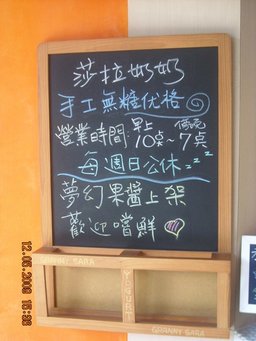 莎拉奶奶
手工無糖优格
營業時間:早上10点~傍晚7点
每週日公休zzz
夢幻果醬上架
歡迎嚐鮮
GRANNY SARA
YOGURT
GRANNY SARA